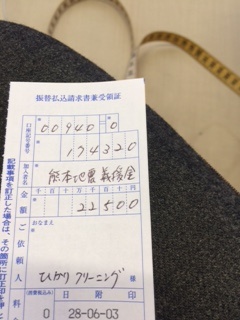 振替払込請求書兼受領証
口座記号番号
00940-0
174320
加入者名
熊本地震義援金
金額
千百十万千百十円
22500
ご依頼人
おなまえ
ひかりクリーニング
様
料金
(消費税込み)
0
日附印
28-06-03
記載事項を訂正した場合は、その箇所に訂正印を押し